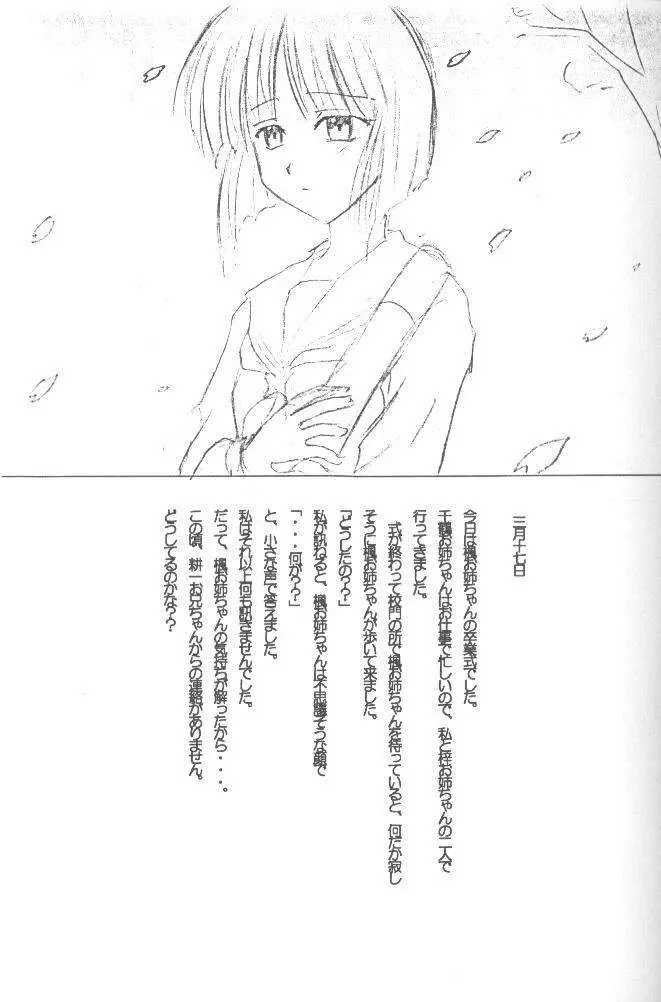 三月十七日
今日は楓お姉ちゃんの卒業式でした。
千鶴お姉ちゃんはお仕事で忙しいので、私と梓お姉ちゃんの二人で
行ってきました。
式が終わって校門の所で楓お姉ちゃんを待っていると、何だか寂し
そうに楓お姉ちゃんが歩いて来ました。
「どうしたの??」
私が訊ねると、楓お姉ちゃんは不思議そうな顔で
「・・・何が??」
と、小さな声で答えました。
私はそれ以上何も訊きませんでした。
だって、楓お姉ちゃんの気持ちが解ったから・・・。
この頃、耕一お兄ちゃんからの連絡がありません。
どうしてるのかな??